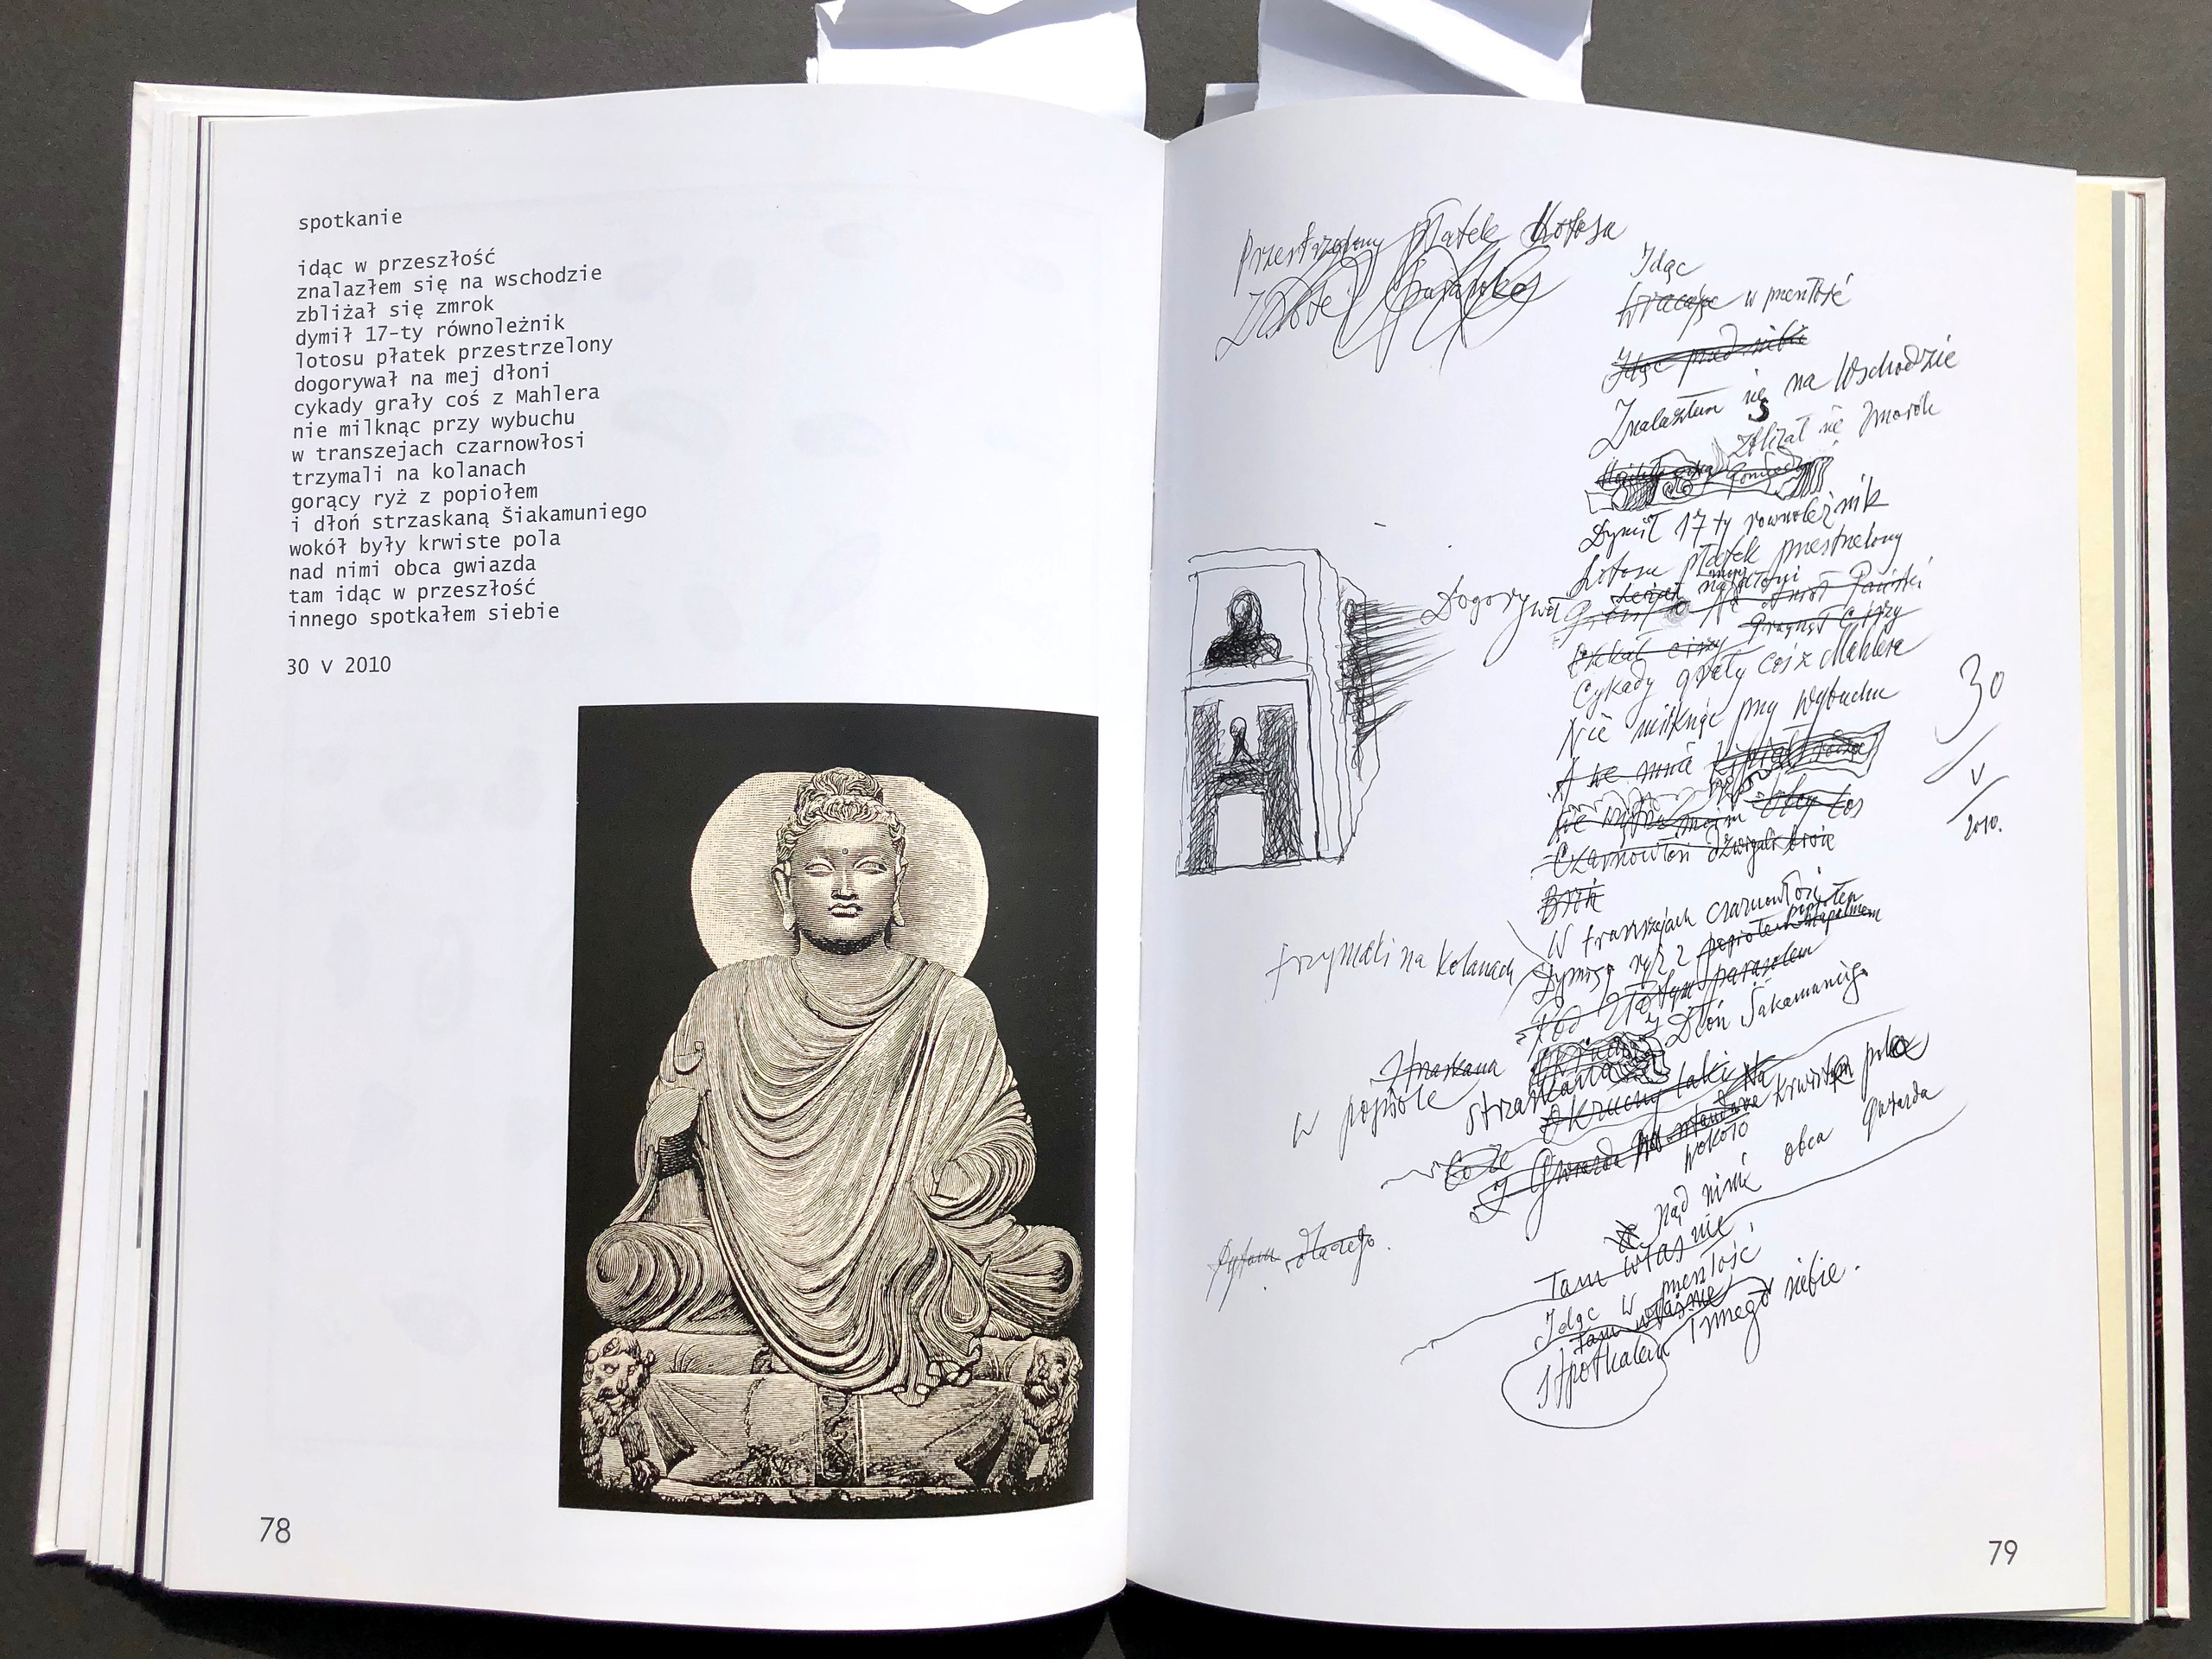 spotkanie
idąc w przeszłość
znalazłem się na wschodzie
zbliżał się zmrok
dymił 17-ty równoleżnik
lotosu płatek przestrzelony
dogorywał na mej dłoni
cykady grały coś z Mahlera
nie milknąc przy wybuchu
w transzejach czarnowłosi
trzymali na kolanach
gorący ryż z popiołem
i dłoń strzaskaną Šiakamuniego
wokół były krwiste pola
nad nimi obca gwiazda
tam idąc w przeszłość
innego spotkałem siebie
30 V 2010
78
Przestrzelony płatek Lotosu
Idąc
Wracając w przeszłość
Idąc przed siebie
Znalazłem się na Wschodzie
Zbliżał się Zmrok
Dymił 17 ty równoleżnik
Lotosu płatek przestrzelony
Dogorywał
Cykady grały Coś z Mahlera
Nie milknąc przy Wybuchu
30
V
2010.
A we mnie
Czarnowłosi dźwigali broń
Broń
W transzejach czarnowłosi
trzymali na kolanach
Dymiący ryż z popiołem
Pod Złotym parasolem
Dłoń Śakamuniego
Strzaskana
w popiele
strzaskana
I Gwiazda
krwiste pola
wokoło
nad nimi obca Gwiazda
Pytam dlaczego.
Tam właśnie
Idąc w przeszłość
Tam właśnie
Spotkałem Innego siebie.
79